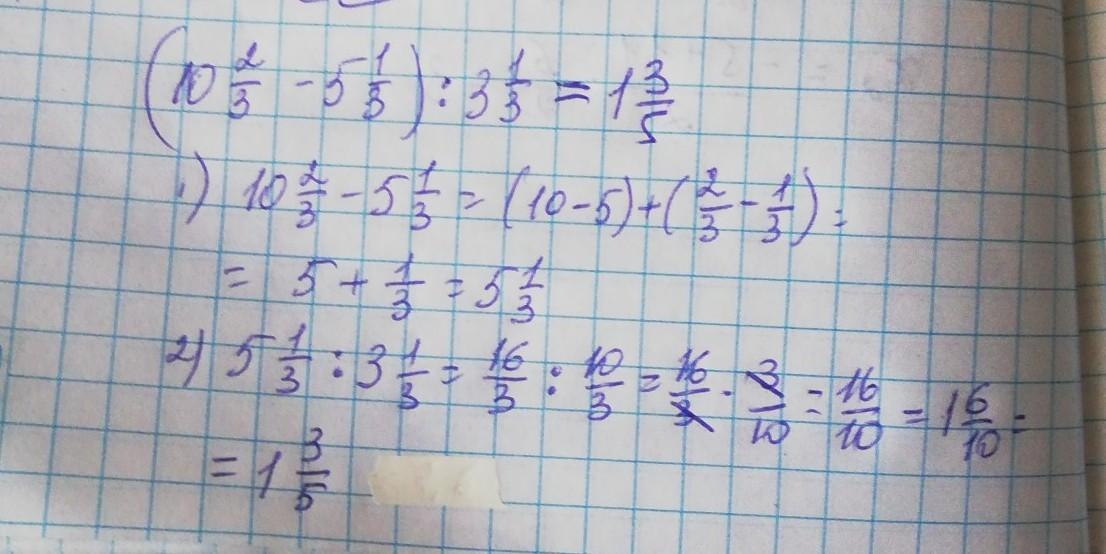 (10 2/3 - 5 1/3) : 3 1/3 = 1 3/5
1) 10 2/3 - 5 1/3 = (10 - 5) + (2/3 - 1/3) =
= 5 + 1/3 = 5 1/3
2) 5 1/3 : 3 1/3 = 16/3 : 10/3 = 16/3 · 3/10 = 16/10 = 1 6/10 =
= 1 3/5